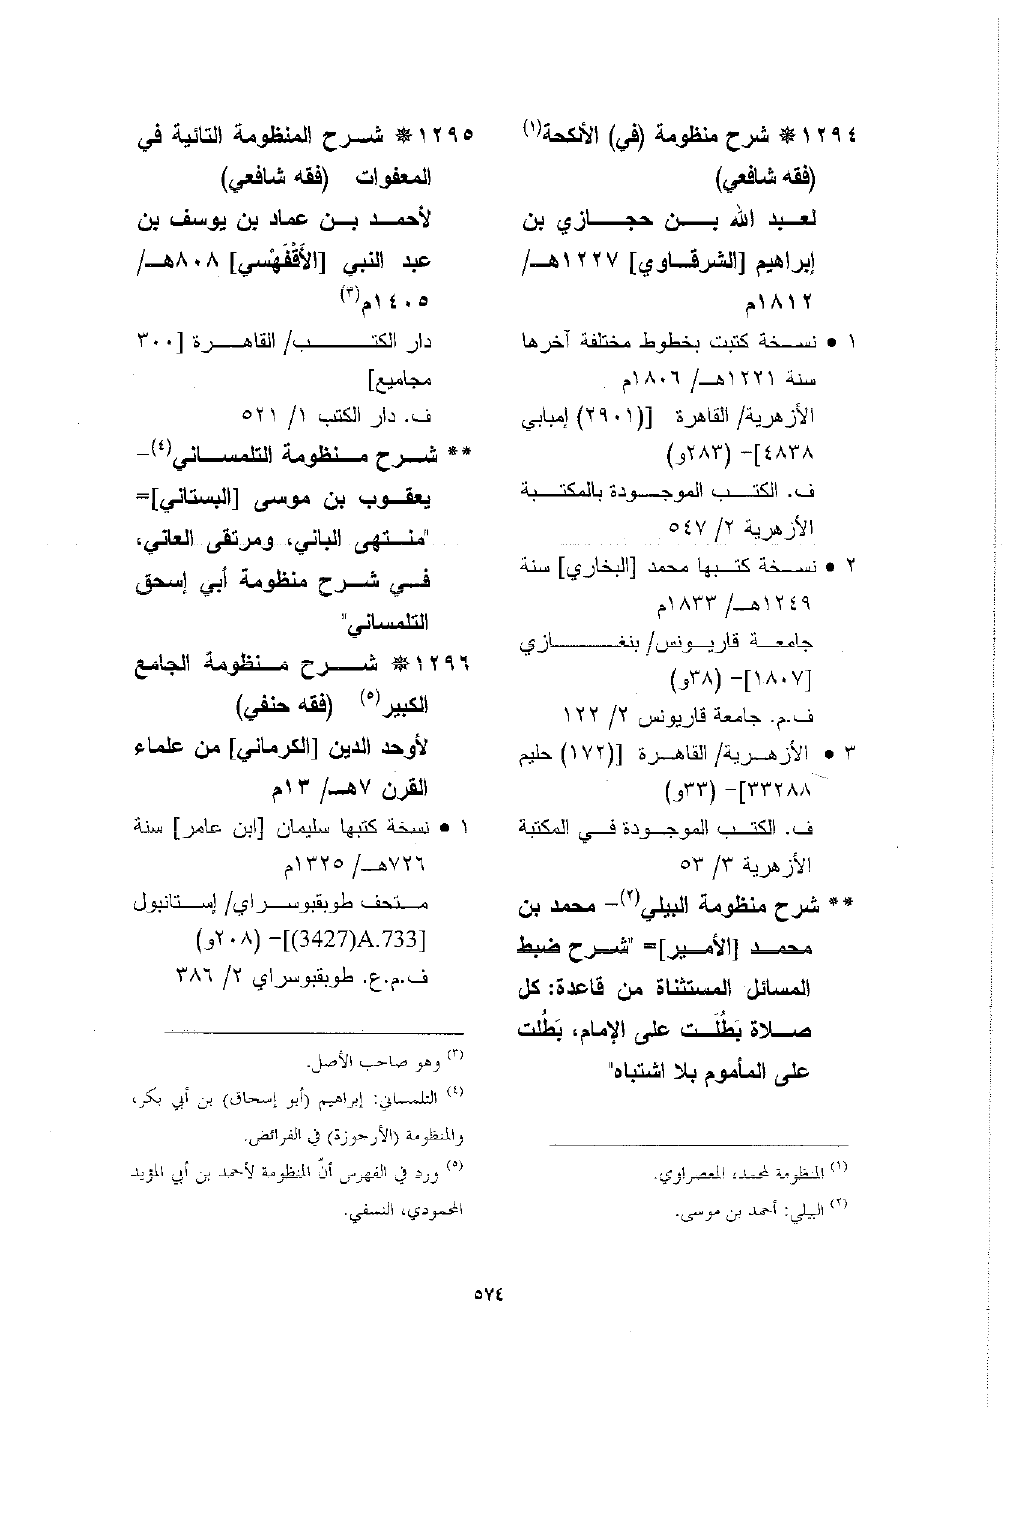 ١٢٩٤ * شرح منظومة (في) الأنكحة(١)
(فقه شافعي)
لعبد الله بن حجازي بن
إبراهيم [الشرقاوي] ١٢٢٧هـ/
١٨١٢م
١ • نسخة كتبت بخطوط مختلفة آخرها
سنة ١٢٢١هـ/ ١٨٠٦م
الأزهرية/ القاهرة [(٢٩٠١) إمبابي
٤٨٣٨]- (٢٨٣و)
ف. الكتب الموجودة بالمكتبة
الأزهرية ٢/ ٥٤٧
٢ • نسخة كتبها محمد [البخاري] سنة
١٢٤٩هـ/ ١٨٣٣م
جامعة قاريونس/ بنغازي
[١٨٠٧]- (٣٨و)
ف.م. جامعة قاريونس ٢/ ١٢٢
٣ • الأزهرية/ القاهرة [(١٧٢) حليم
٣٣٢٨٨]- (٣٣و)
ف. الكتب الموجودة في المكتبة
الأزهرية ٣/ ٥٣
** شرح منظومة البيلي(٢)- محمد بن
محمد [الأمير]= "شرح ضبط
المسائل المستثناة من قاعدة: كل
صلاة بَطُلَت على الإمام، بَطُلت
على المأموم بلا اشتباه"
(١) المنظومة لمحمد، المعصراوي.
(٢) البيلي: أحمد بن موسى.
١٢٩٥ * شرح المنظومة التائية في
المعفوات (فقه شافعي)
لأحمد بن عماد بن يوسف بن
عبد النبي [الأَقْفَهْسي] ٨٠٨هـ/
١٤٠٥م(٣)
دار الكتب/ القاهرة [٣٠٠
مجاميع]
ف. دار الكتب ١/ ٥٢١
** شرح منظومة التلمساني(٤)-
يعقوب بن موسى [البستاني]=
"منتهى الباني، ومرتقى العاني،
في شرح منظومة أبي إسحق
التلمساني"
١٢٩٦ * شرح منظومة الجامع
الكبير(٥) (فقه حنفي)
لأوحد الدين [الكرماني] من علماء
القرن ٧هـ/ ١٣م
١ • نسخة كتبها سليمان [ابن عامر] سنة
٧٢٦هـ/ ١٣٢٥م
متحف طوبقبوسراي/ إستانبول
[(3427)A.733]- (٢٠٨و)
ف.م.ع. طوبقبوسراي ٢/ ٣٨٦
(٣) وهو صاحب الأصل.
(٤) التلمساني: إبراهيم (أبو إسحاق) بن أبي بكر،
والمنظومة (الأرجوزة) في الفرائض.
(٥) ورد في الفهرس أنّ المنظومة لأحمد بن أبي المؤيد
المحمودي، النسفي.
٥٧٤